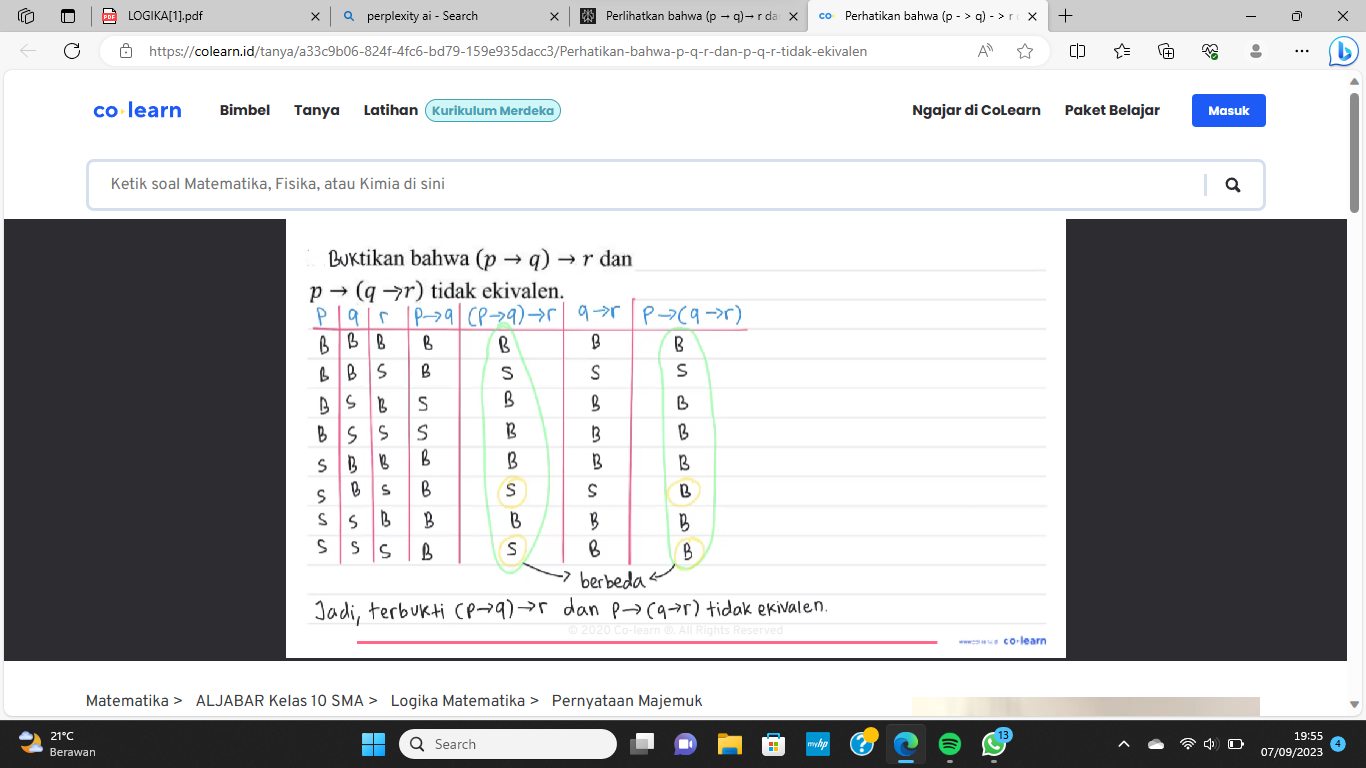 LOGIKA[1].pdf
perplexity ai - Search
Perlihatkan bahwa (p → q)→ r da
Perhatikan bahwa (p - > q) - > r
https://colearn.id/tanya/a33c9b06-824f-4fc6-bd79-159e935dacc3/Perhatikan-bahwa-p-q-r-dan-p-q-r-tidak-ekivalen
co learn Bimbel Tanya Latihan Kurikulum Merdeka Ngajar di CoLearn Paket Belajar Masuk
Ketik soal Matematika, Fisika, atau Kimia di sini
Buktikan bahwa (p → q) → r dan
p → (q → r) tidak ekivalen.
P q r P→q (P→q)→r q→r P→(q→r)
B B B B B B B
B B S B S S S
B S B S B B B
B S S S B B B
S B B B B B B
S B S B S S B
S S B B B B B
S S S B S B B
berbeda
Jadi, terbukti (P→q)→r dan P→(q→r) tidak ekivalen.
© 2020 Co-learn ®. All Rights Reserved
co·learn
Matematika > ALJABAR Kelas 10 SMA > Logika Matematika > Pernyataan Majemuk
21°C
Berawan
Search
myhp
13
19:55
07/09/2023
4